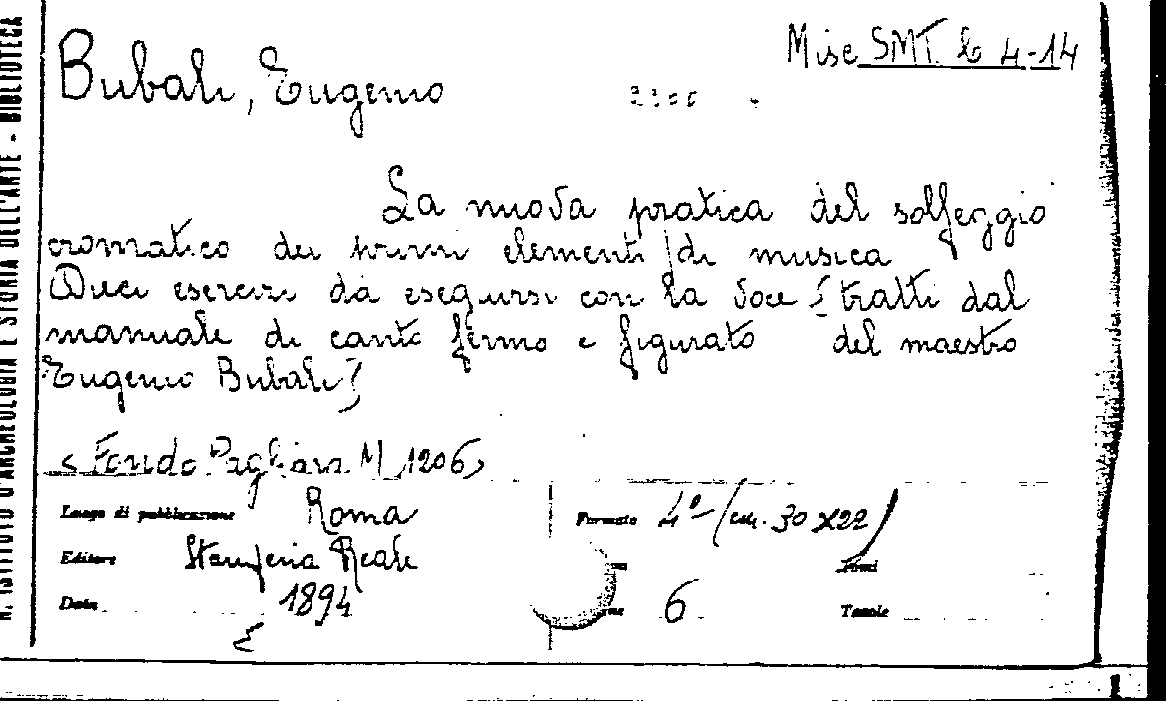 N. ISTITUTO D'ARCHEOLOGIA E STORIA DELL'ARTE - BIBLIOTECA
Misc SMT b 4-14
Bubali, Eugenio
La nuova pratica del solfeggio
cromatico dei primi elementi di musica
Dieci esercizi da eseguirsi con la voce [tratti dal
manuale di canto fermo e figurato del maestro
Eugenio Bubali]
< Fondo Pagliara M 1206>
Luogo di pubblicazione Roma
Formato 4º (cm. 30x22)
Editore Stamperia Reale
Tomi
Data 1894
6
Tavole